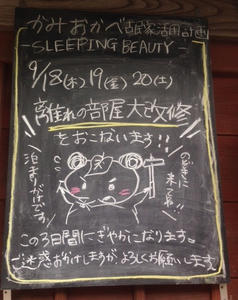 かみおかべ古民家活用計画
-SLEEPING BEAUTY-
9/18(木)19(金)20(土)
離れの部屋大改修
をおこないます!!
のぞきに
来てネ!!
泊まりがけです。
この3日間にぎやかになります。
ご迷惑おかけしますが、よろしくお願いします